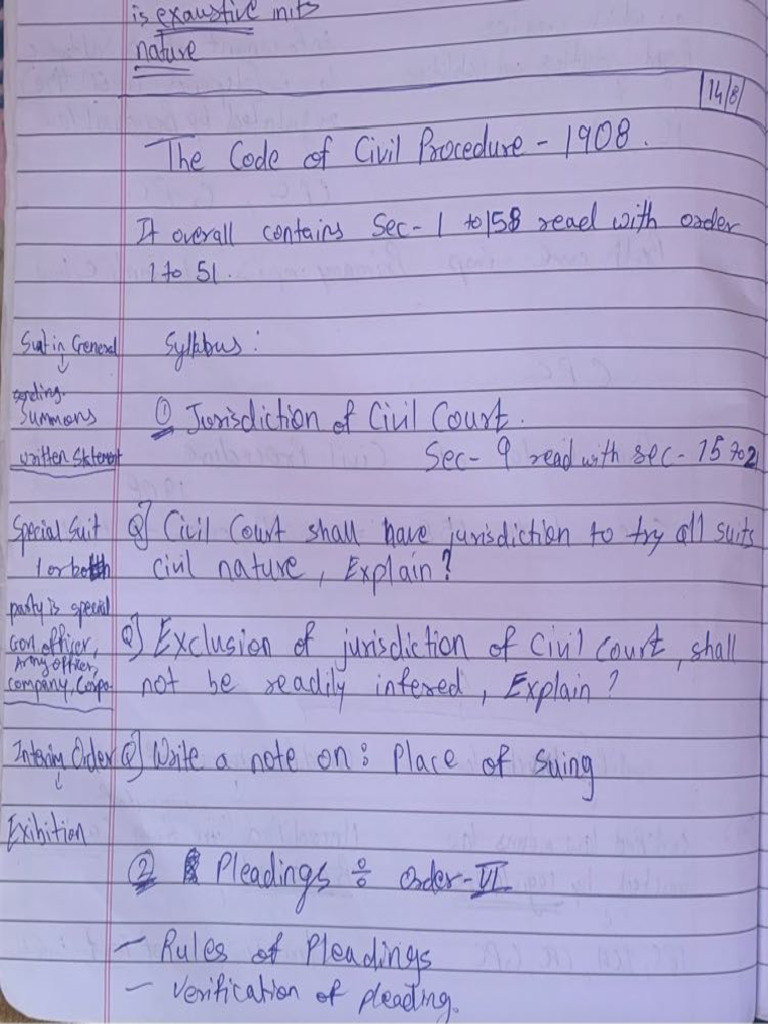 is exaustive in its
nature
14/8
The Code of Civil Procedure - 1908.
It overall contains Sec - 1 to 158 read with order
1 to 51.
Suit in General
↓
sending
Summons
written Statement
Special Suit
1 or both
party is special
Gov. officer,
Army officer,
company, Corpo.
Interim Order
↓
Exibition
Syllabus :
① Jurisdiction of Civil Court.
Sec - 9 read with sec - 15 to 21
Q] Civil Court shall have jurisdiction to try all suits
civil nature, Explain?
Q] Exclusion of jurisdiction of Civil Court, shall
not be readily infered, Explain?
Q] Write a note on : Place of Suing
② Pleadings ÷ order - VI
— Rules of Pleadings
— Verification of pleading.